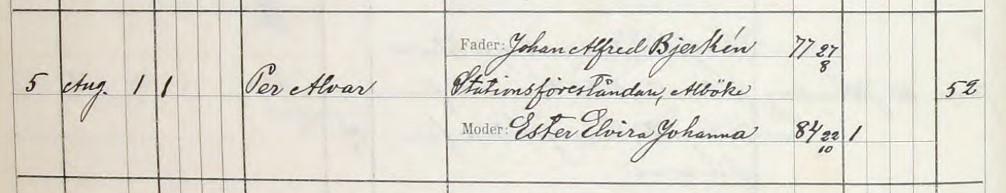 Fader: Johan Alfred Bjerkén 77 27/8
5 Aug. 1 1 Per Alvar Stationsföreståndare, Alböke 52
Moder: Ester Elvira Johanna 84 22/10 1